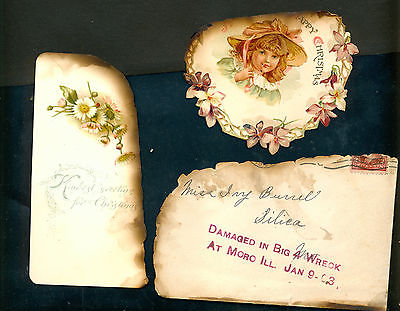 Happy
Christmas
Kindest Greeting
for Christmas
Miss Ivy Burrel
Silica
DAMAGED IN BIG 4 WRECK
AT MORO ILL. JAN 9-03.